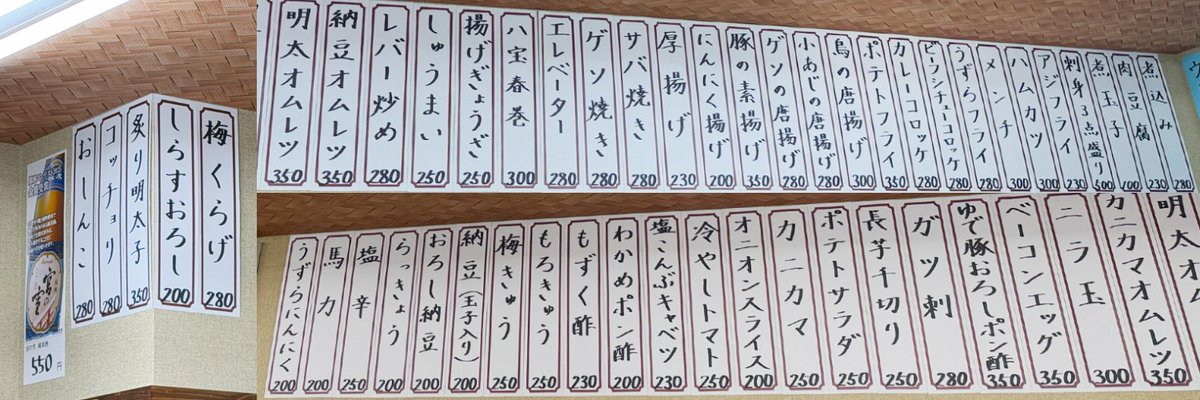 梅くらげ 280
しらすおろし 200
炙り明太子 350
コッチョリ 280
おしんこ 280
550円
煮込み 280
肉豆腐 230
煮玉子 100
刺身3点盛り 500
アジフライ 230
ハムカツ 300
メンチ 300
うずらフライ 280
ビーフシチューコロッケ 280
カレーコロッケ 280
ポテトフライ 350
鳥の唐揚げ 280
小あじの唐揚げ 280
ゲソの唐揚げ 280
豚の素揚げ 350
にんにく揚げ 200
厚揚げ 230
サバ焼き 280
ゲソ焼き 280
エレベーター 280
八宝春巻 300
揚げぎょうざ 250
しゅうまい 250
レバー炒め 280
納豆オムレツ 350
明太オムレツ 350
明太オ
カニカマオムレツ 350
ニラ玉 300
ベーコンエッグ 350
ゆで豚おろしポン酢 350
ガツ刺 280
長芋千切り 250
ポテトサラダ 250
カニカマ 250
オニオンスライス 200
冷やしトマト 250
塩こんぶキャベツ 230
わかめポン酢 200
もずく酢 230
もろきゅう 250
梅きゅう 250
納豆(玉子入り) 200
おろし納豆 200
らっきょう 200
塩辛 250
馬力 200
うずらにんにく 200